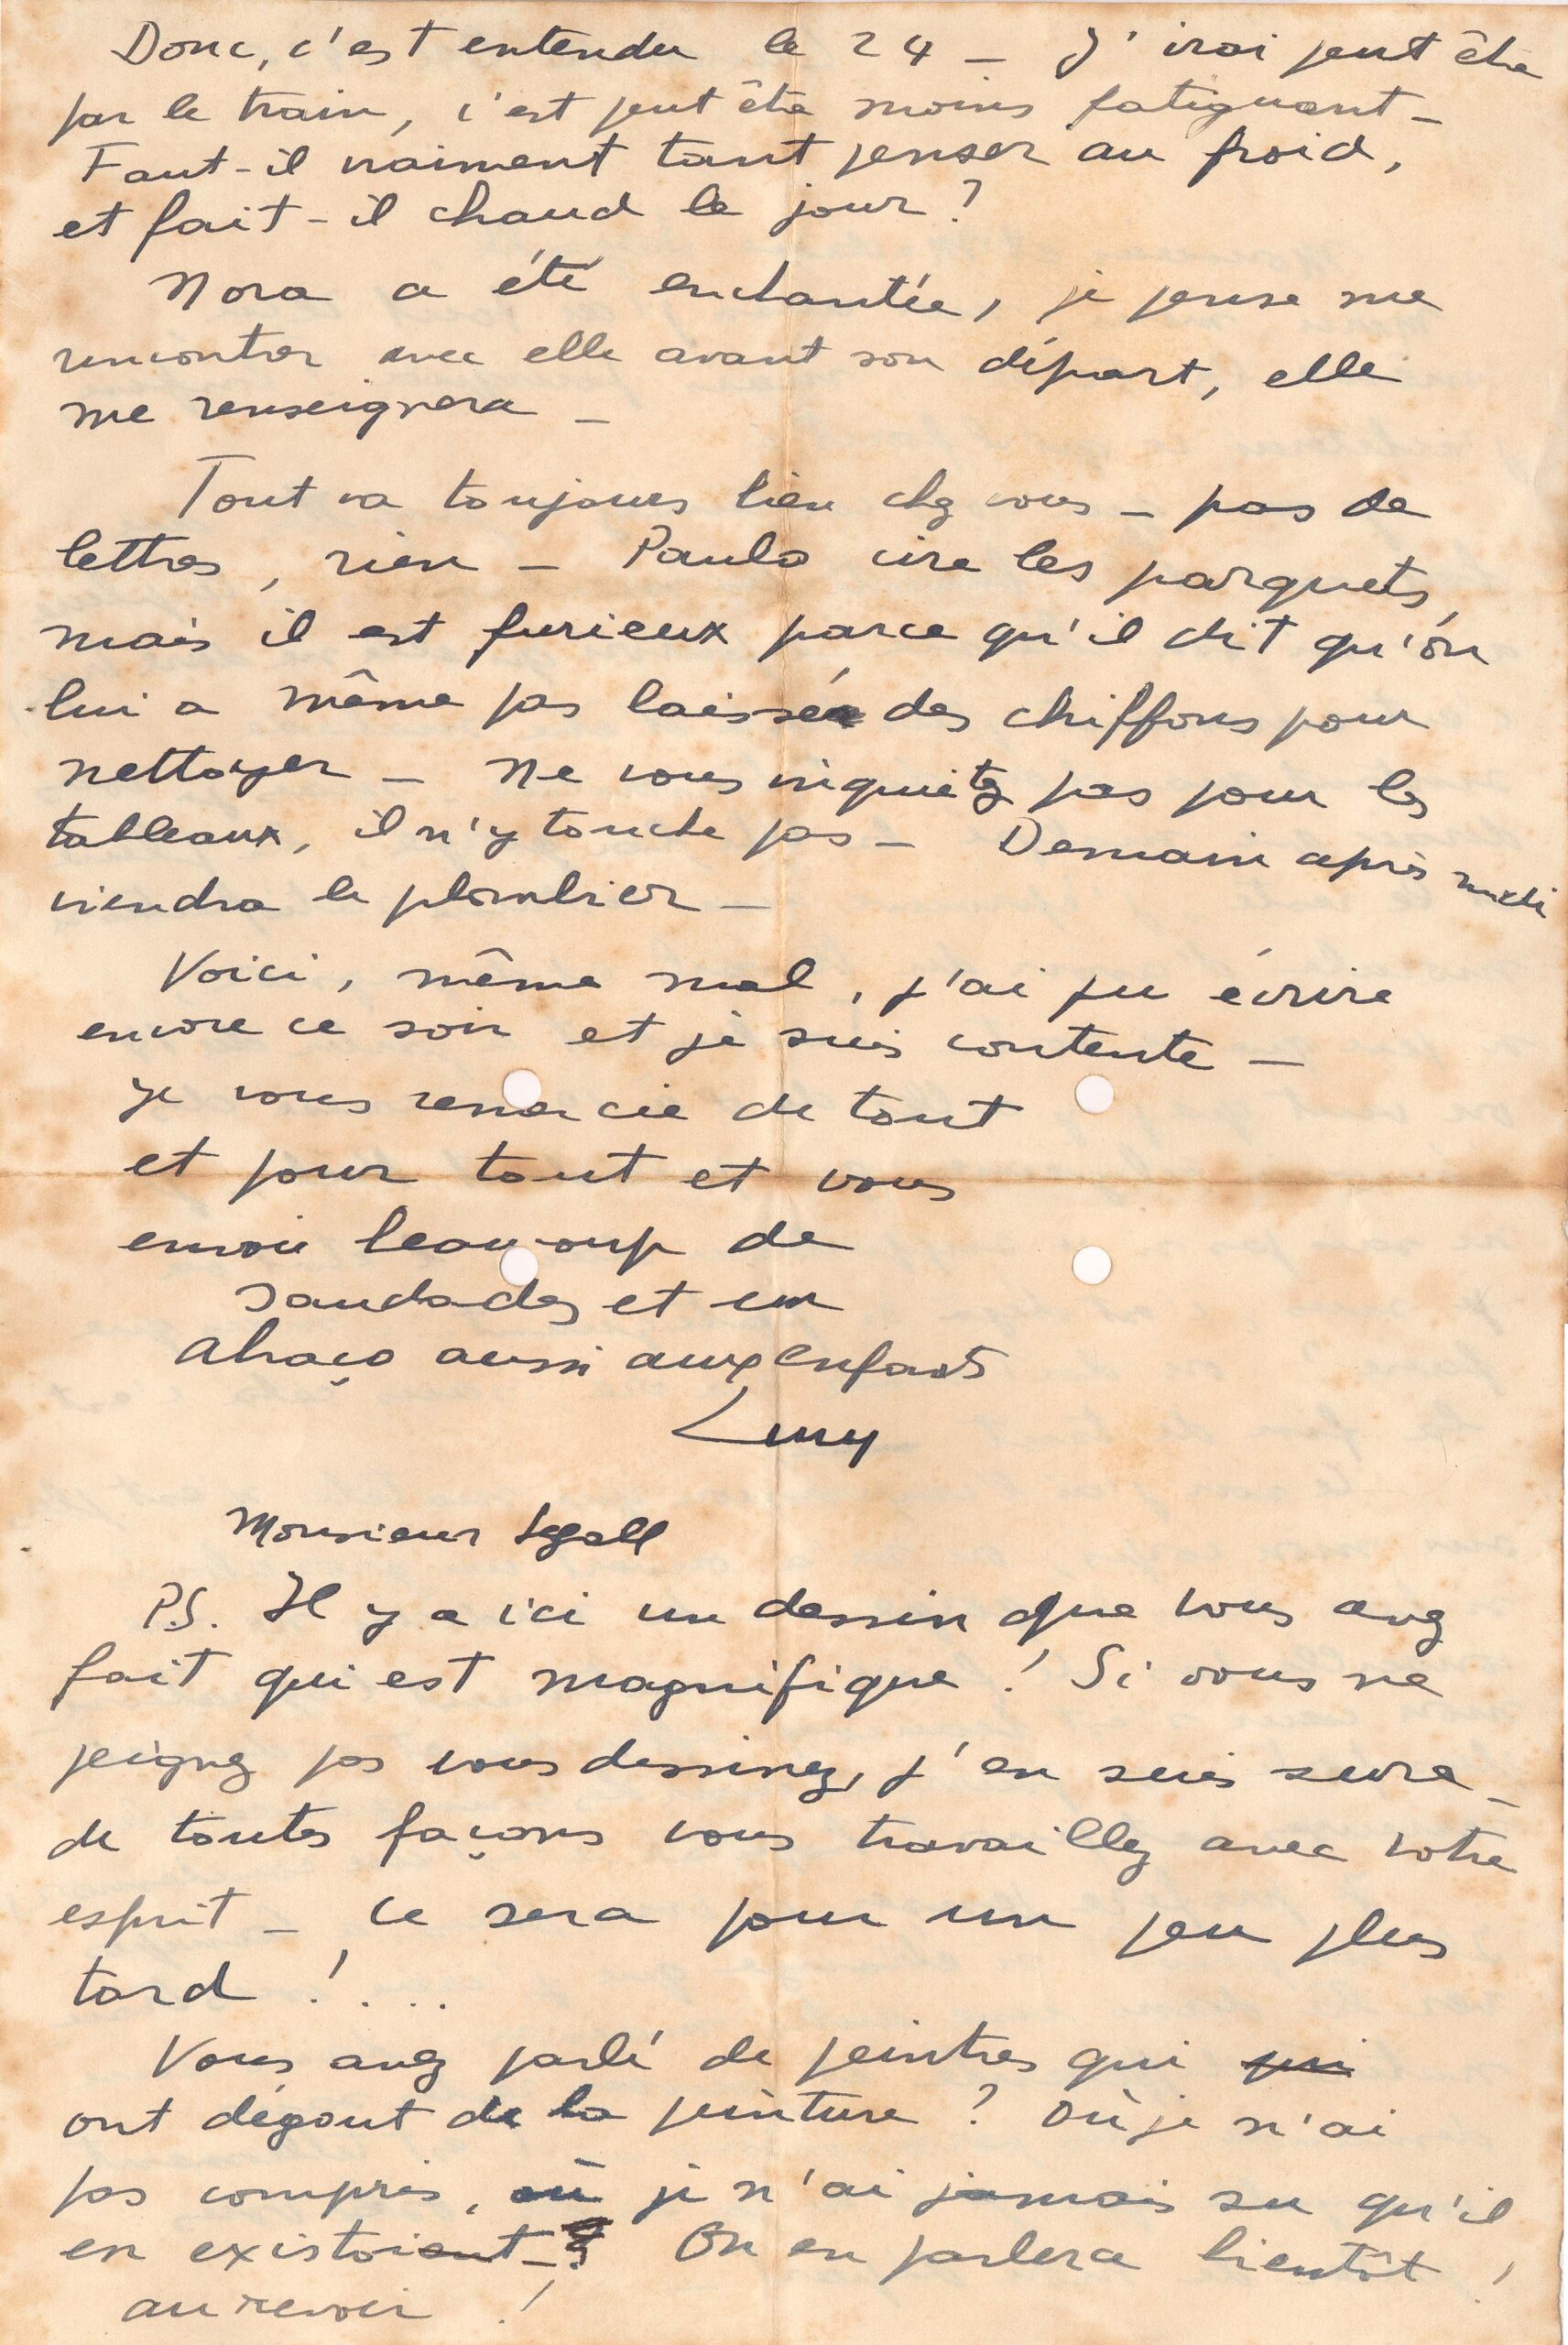 Donc, c'est entendu le 24 _ J'irai peut être
par le train, c'est peut être moins fatiguant _
Faut-il vraiment tant penser au froid,
et fait-il chaud le jour ?
Nora a été enchantée, je pense me
rencontrer avec elle avant son départ, elle
me renseignera _
Tout va toujours bien chez vous _ pas de
lettres, rien _ Paulo cire les parquets,
mais il est furieux parce qu'il dit qu'on
lui a même pas laissé des chiffons pour
nettoyer _ Ne vous inquietez pas pour les
tableaux, il n'y touche pas _ Demain après midi
viendra le plombier _
Voici, même mal, j'ai pu écrire
encore ce soir et je suis contente _
Je vous remercie de tout
et pour tout et vous
envoie beaucoup de
Saudades et un
abraço aussi aux enfants
Lucy
Monsieur Segall
P.S. Il y a ici un dessin que vous avez
fait qui est magnifique ! Si vous ne
peignez pas vous dessinez, j'en suis sure _
de toutes façons vous travaillez avec votre
esprit _ Ce sera pour un peu plus
tard ! ...
Vous avez parlé de peintres qui qui
ont dégout de la peinture ? Où je n'ai
pas compris, où je n'ai jamais su qu'il
en existaient _ ? On en parlera bientôt !
au revoir !